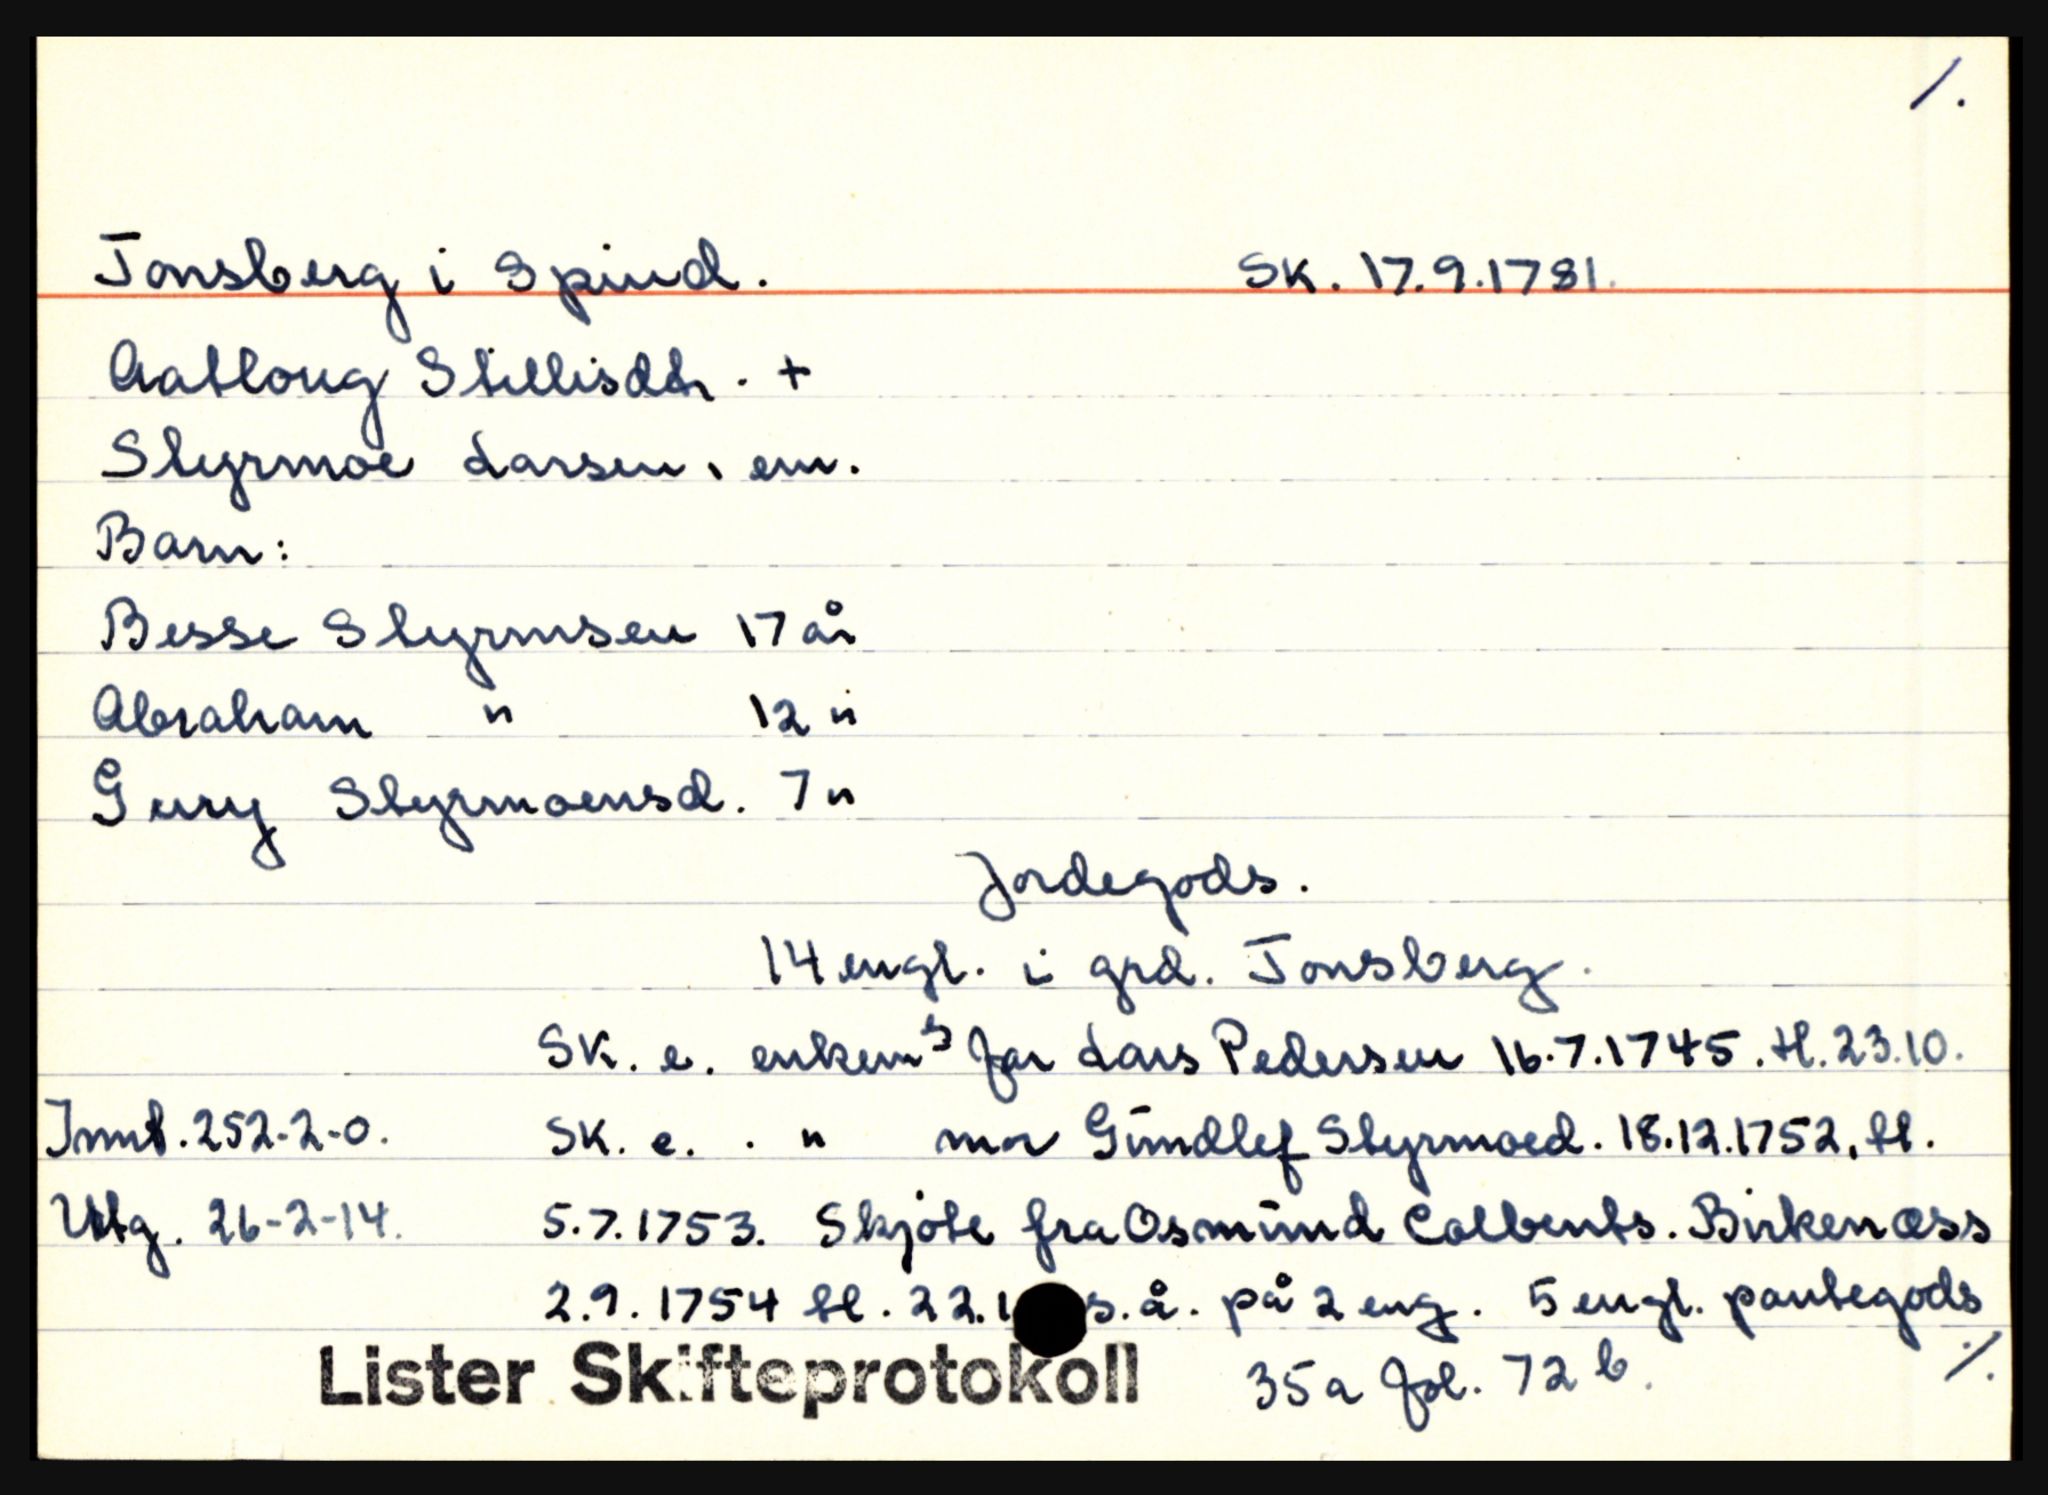 1.
Tonsberg i Spind. SK. 17.9.1781.
Aatloug Stillisdtr. +
Styrmoe Larsen, em.
Barn:
Besse Styrmsen 17 år
Abraham " 12 "
Gury Styrmoensd. 7 "
Jordegods.
14 engl. i grd. Tonsberg.
SK. e. enkem's far Lars Pedersen 16.7.1745. tl. 23.10.
Innt. 252-2-0. SK. e. . " mor Gundlef Styrmoed. 18.12.1752, tl.
Utg. 26-2-14. 5.7.1753. Skjøte fra Osmund Colbents. Birkenæss
2.9.1754 tl. 22.1 s.å. på 2 eng. 5 engl. pantegods
Lister Skifteprotokoll 35a fol. 72 b. ./.